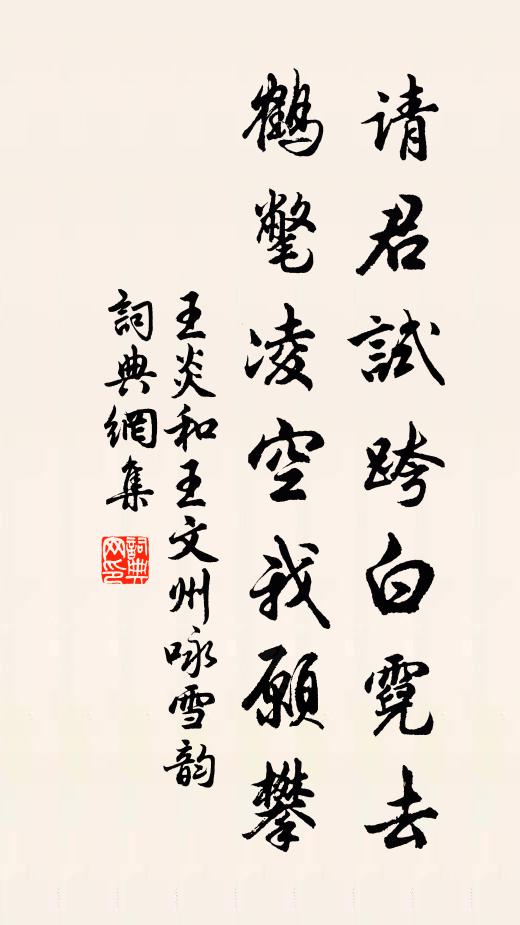 请君試跨白霓去
鶴氅凌空我願攀
王炎和王文州咏雪韵
詞典網集